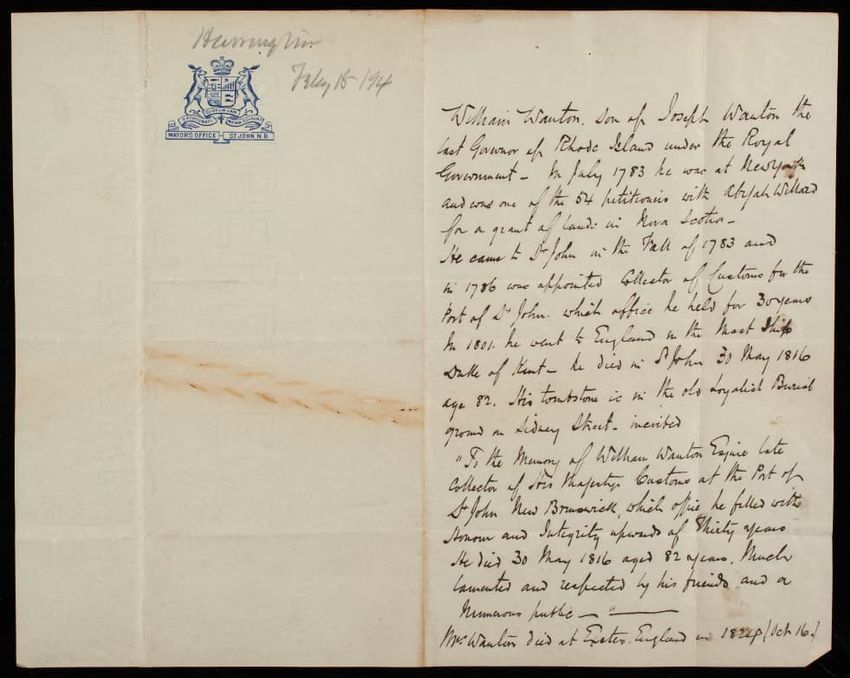 Harrington
Feby 15 / 94
MAYORS OFFICE ST JOHN N.B.
William Wanton. Son of Joseph Wanton the
last Governor of Rhode Island under the Royal
Government - In July 1783 he was at New York
and was one of the 54 petitioners with Abijah Willard
for a grant of lands in Nova Scotia -
He came to St John in the Fall of 1783 and
in 1786 was appointed Collector of Customs for the
Port of St John. which office he held for 30 years
In 1801. he went to England in the Mast Ship
Duke of Kent - he died in St John 30 May 1816
age 82. His tombstone is in the old Loyalist Burial
ground on Sidney Street - incribed
"To the Memory of William Wanton Esquire late
Collector of His Majestys Customs at the Port of
St John New Brunswick, which office he filled with
Honour and Integrity upwards of Thirty years
He died 30 May 1816 aged 82 years. Much
lamented and respected by his friends and a
Numerous public - " -
Mrs Wanton died at Exeter. England in 1824 (Oct 16.)